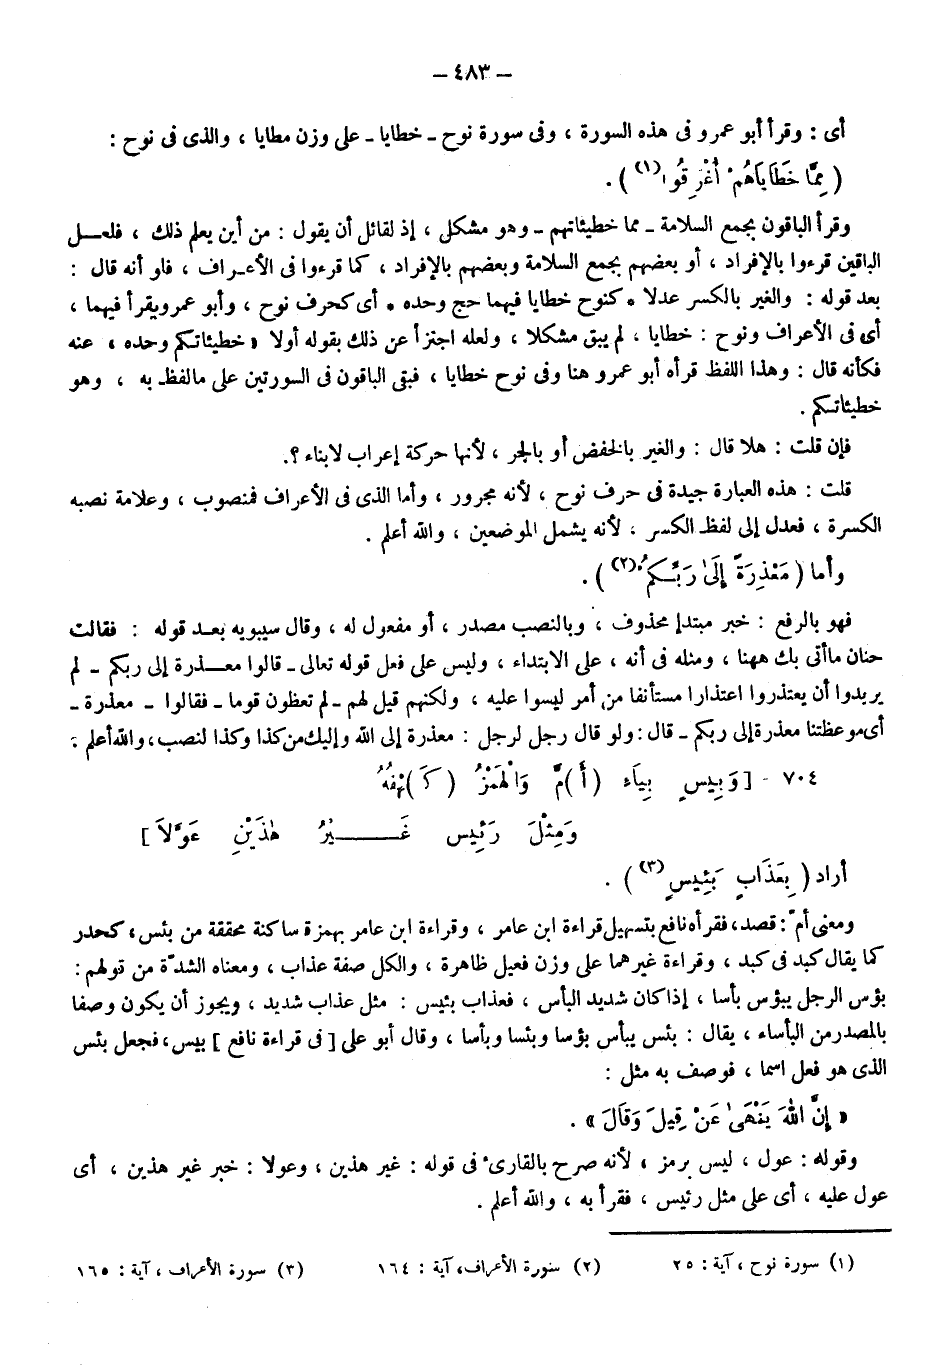 — ٤٨٣ —
أى : وقرأ أبو عمرو فى هذه السورة ، وفى سورة نوح ـ خطايا ـ على وزن مطايا ، والذى فى نوح :
( مِمَّا خَطَايَاهُمْ أُغْرِقُوا(١) ) .
وقرأ الباقون بجمع السلامة ـ مما خطيئاتهم ـ وهو مشكل ، إذ لقائل أن يقول : من أين يعلم ذلك ، فلعـــل
الباقين قرءوا بالإفراد ، أو بعضهم بجمع السلامة وبعضهم بالإفراد ، كما قرءوا فى الأعراف ، فلو أنه قال :
بعد قوله : والغير بالكسر عدلا * كنوح خطايا فيهما حج وحده * أى كحرف نوح ، وأبو عمرو يقرأ فيهما ،
أى فى الأعراف ونوح : خطايا ، لم يبق مشكلا ، ولعله اجتزأ عن ذلك بقوله أولا « خطيئاتكم وحده » عنه
فكأنه قال : وهذا اللفظ قرأه أبو عمرو هنا وفى نوح خطايا ، فبقى الباقون فى السورتين على مالفظ به ، وهو
خطيئاتكم .
فإن قلت : هلا قال : والغير بالخفض أو بالجر ، لأنها حركة إعراب لابناء ؟.
قلت : هذه العبارة جيدة فى حرف نوح ، لأنه مجرور ، وأما الذى فى الأعراف فمنصوب ، وعلامة نصبه
الكسرة ، فعدل إلى لفظ الكسر ، لأنه يشمل الموضعين ، والله أعلم .
وأما ( مَعْذِرَةً إِلَىٰ رَبِّكُمْ(٢) ) .
فهو بالرفع : خبر مبتدإ محذوف ، وبالنصب مصدر ، أو مفعول له ، وقال سيبويه بعـد قوله : فقالت
حنان ماأتى بك ههنا ، ومثله فى أنه ، على الابتداء ، وليس على فعل قوله تعالى ـ قالوا معـــذرة إلى ربكم ـ لم
يريدوا أن يعتذروا اعتذارا مستأنفا من أمر ليسوا عليه ، ولكنهم قيل لهم ـ لم تعظون قوما ـ فقالوا ـ معذرة ـ
أى موعظتنا معذرة إلى ربكم ـ قال : ولو قال رجل لرجل : معذرة إلى الله وإليك من كذا وكذا لنصب ، والله أعلم .
٧٠٤ - [ وَبِيسٍ بِيَاءٍ (أَ)مَّ وَالْهَمْزُ (كَـ)هْفُهُ
وَمِثْلَ رَئِيسٍ غَـــــيْرُ هٰذَيْنِ عَوَّلَا ]
أراد ( بِعَذَابٍ بَئِيسٍ(٣) ) .
ومعنى أمّ : قصد ، فقرأه نافع بتسهيل قراءة ابن عامر ، وقراءة ابن عامر بهمزة ساكنة محققة من بئس ، كحدر
كما يقال كبد فى كبد ، وقراءة غيرهما على وزن فعيل ظاهرة ، والكل صفة عذاب ، ومعناه الشدّة من تولهم :
بؤس الرجل يبؤس بأسا ، إذا كان شديد البأس ، فعذاب بئيس : مثل عذاب شديد ، ويجوز أن يكون وصفا
بالمصدر من البأساء ، يقال : بئس يبأس بؤسا وبئسا وبأسا ، وقال أبو على [ فى قراءة نافع ] بيس ، فجعل بئس
الذى هو فعل اسما ، فوصف به مثل :
« إِنَّ اللهَ يَنْهَىٰ عَنْ قِيلَ وَقَالَ » .
وقوله : عول ، ليس برمز ، لأنه صرح بالقارئ فى قوله : غير هذين ، وعولا : خبر غير هذين ، أى
عول عليه ، أى على مثل رئيس ، فقرأ به ، والله أعلم .
(١) سورة نوح ، آية : ٢٥ (٢) سورة الأعراف ، آية : ١٦٤ (٣) سورة الأعراف ، آية : ١٦٥